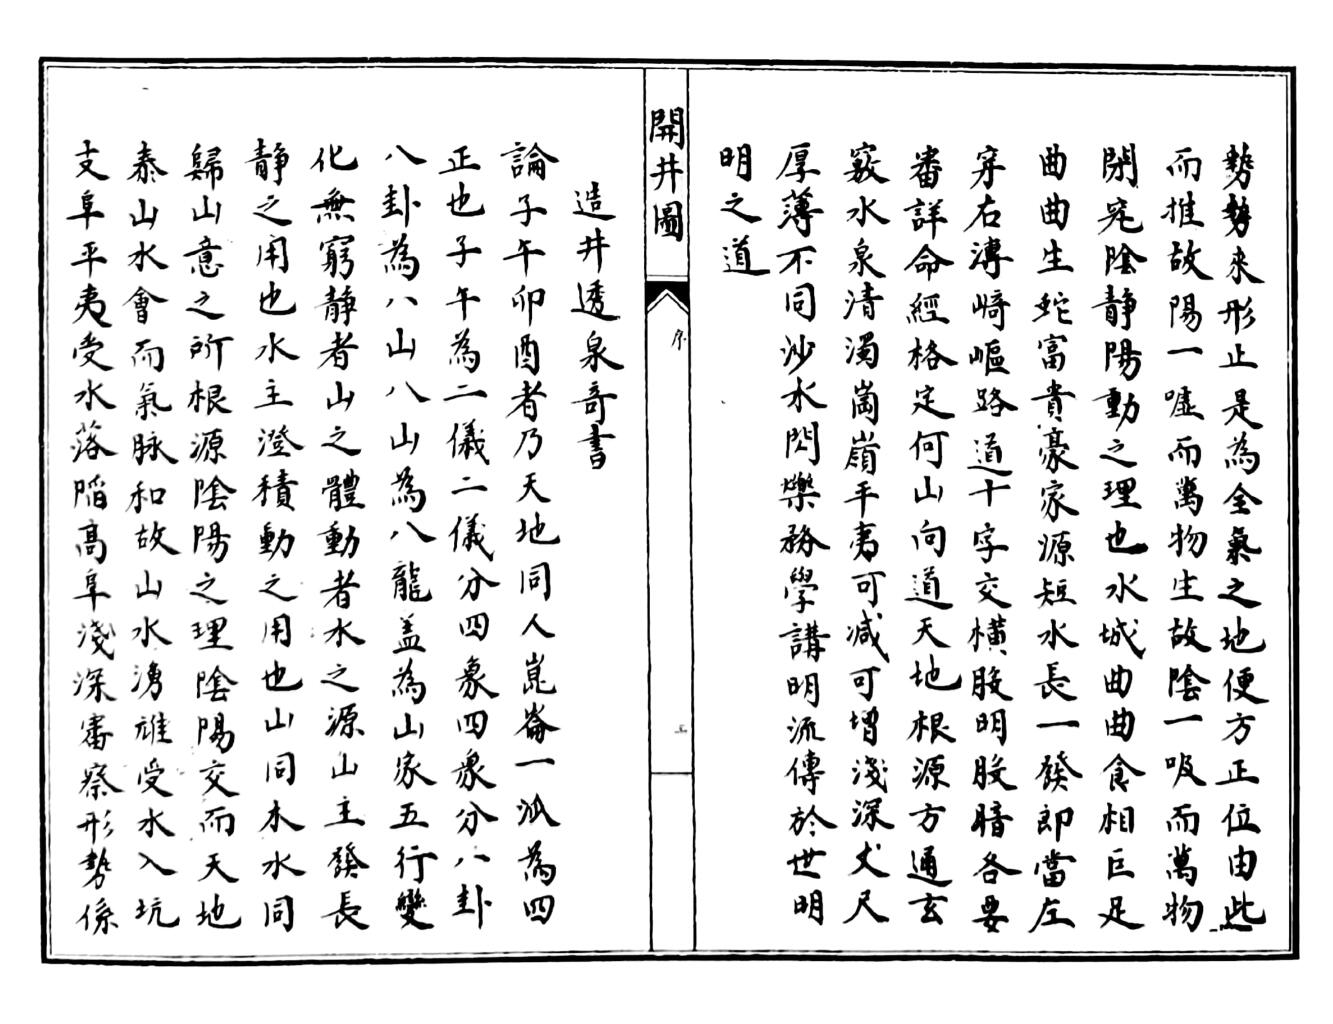 勢勢來形止是為全氣之地便方正位由此
而推故陽一噓而萬物生故陰一吸而萬物
閉宛陰靜陽動之理也水城曲曲食相巨足
曲曲生蛇富貴豪家源短水長一發即當左
穿右漙﨑嶇路道十字交橫股明股暗各要
審詳命經格定何山向道天地根源方通玄
竅水泉清濁崗嶺平夷可減可增淺深丈尺
厚薄不同沙水閃爍務學講明流傳於世明
明之道
開井圖
序
造井透泉奇書
論子午卯酉者乃天地同人崑崙一派為四
正也子午為二儀二儀分四象四象分八卦
八卦為八山八山為八龍盖為山家五行變
化無窮靜者山之體動者水之源山主發長
靜之用也水主澄積動之用也山同木水同
歸山意之所根源陰陽之理陰陽交而天地
泰山水會而氣脉和故山水湧雄受水入坑
支阜平夷受水落陷高阜淺深審察形勢係